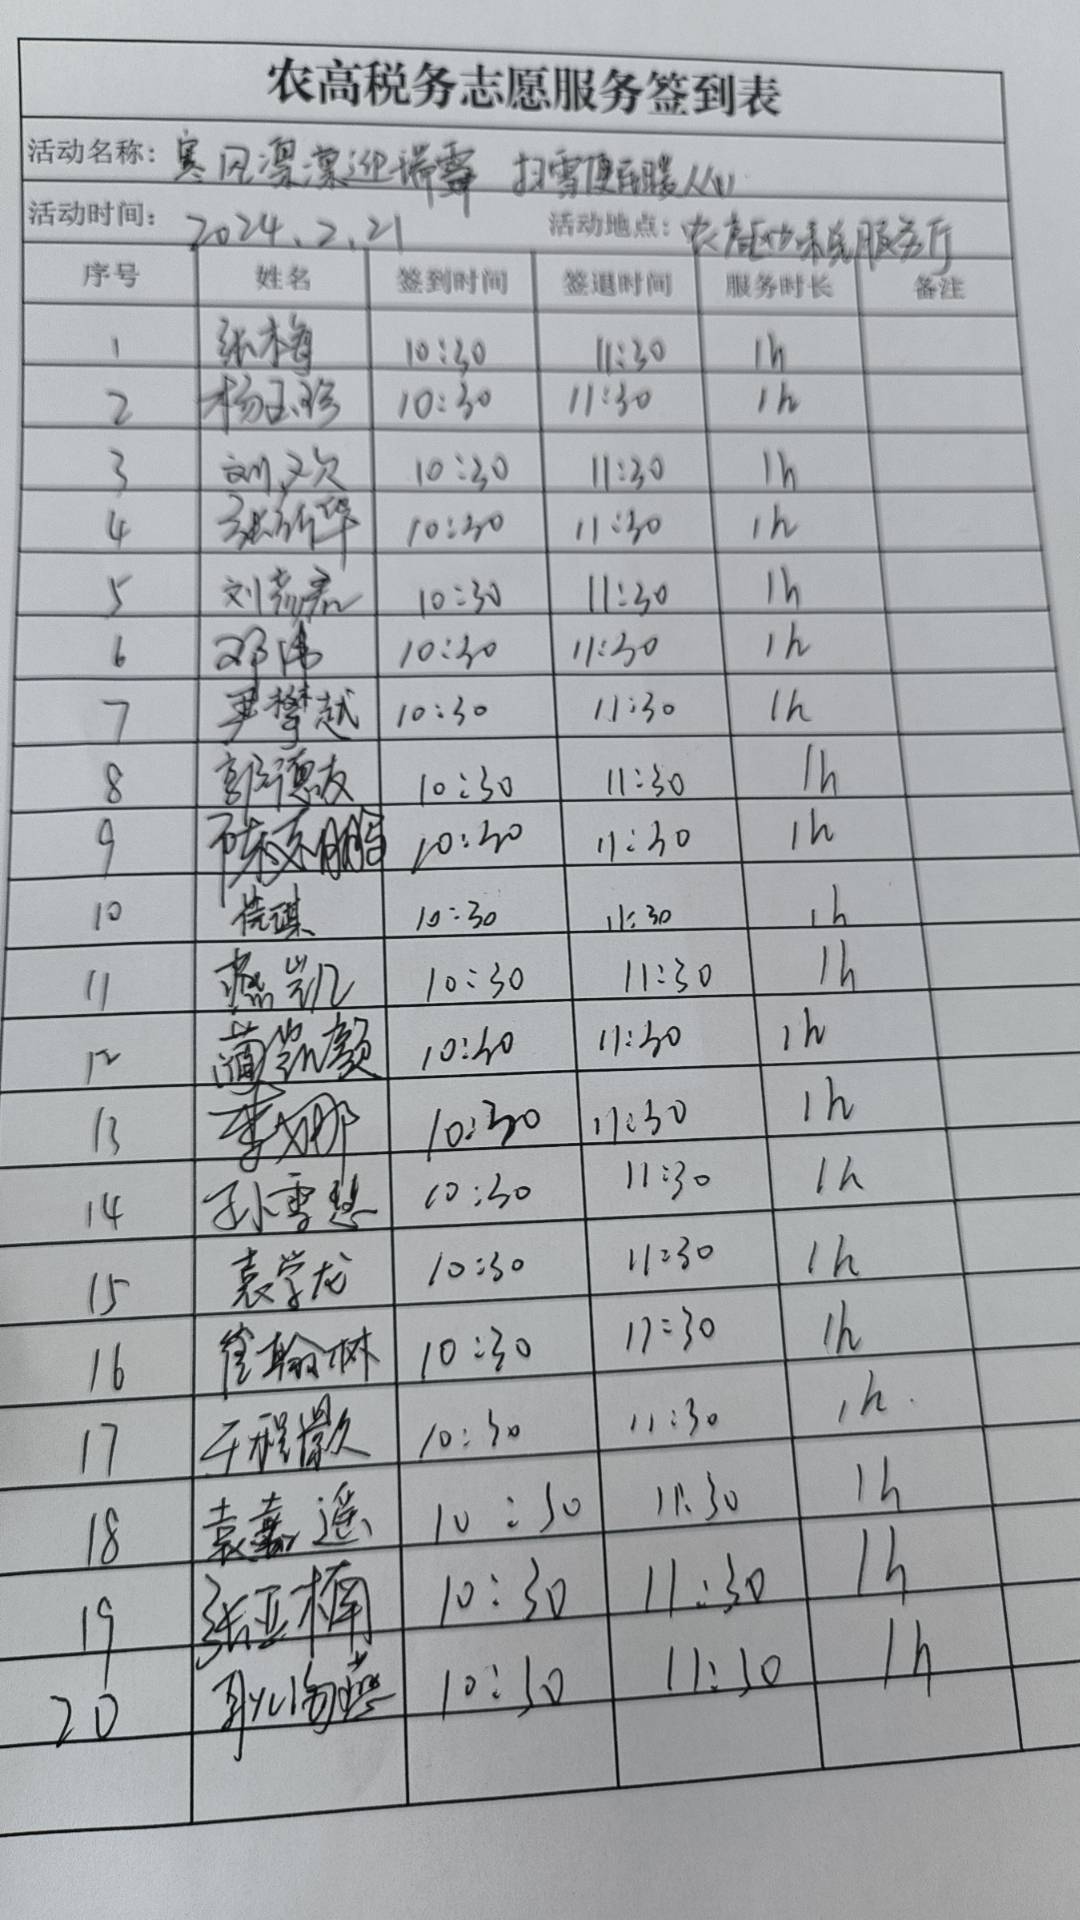 农高税务志愿服务签到表
活动名称：寒风凛凛迎瑞雪 扫雪便民暖人心
活动时间：2024.2.21 活动地点：农高区办税服务厅
序号 姓名 签到时间 签退时间 服务时长 备注
1 张梅 10:30 11:30 1h
2 杨玉珍 10:30 11:30 1h
3 刘欢 10:30 11:30 1h
4 张新华 10:30 11:30 1h
5 刘 10:30 11:30 1h
6 邓伟 10:30 11:30 1h
7 尹攀越 10:30 11:30 1h
8 郭德友 10:30 11:30 1h
9 陈 10:30 11:30 1h
10 琪 10:30 11:30 1h
11 凯 10:30 11:30 1h
12 蔺凯颜 10:30 11:30 1h
13 李娜 10:30 11:30 1h
14 孙雪慧 10:30 11:30 1h
15 袁学龙 10:30 11:30 1h
16 崔翰林 10:30 11:30 1h
17 于程 10:30 11:30 1h.
18 袁嘉遥 10:30 11:30 1h
19 张亚楠 10:30 11:30 1h
20 耿 10:30 11:30 1h